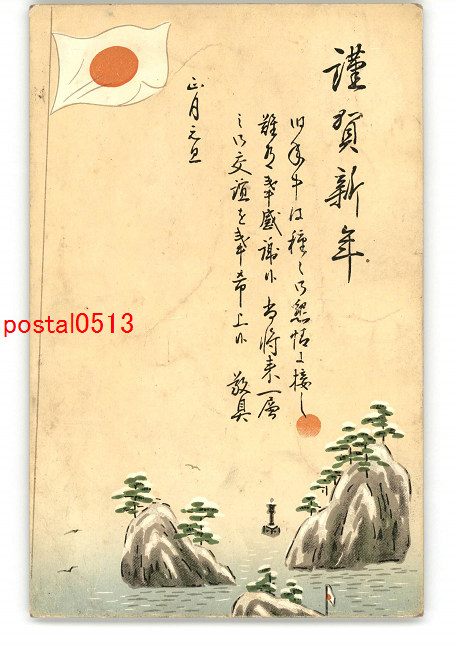 謹賀新年
旧年中は種々御懇情に接し
難有奉感謝候尚将来一層
之御交誼を奉希上候 敬具
正月元旦
postal0513